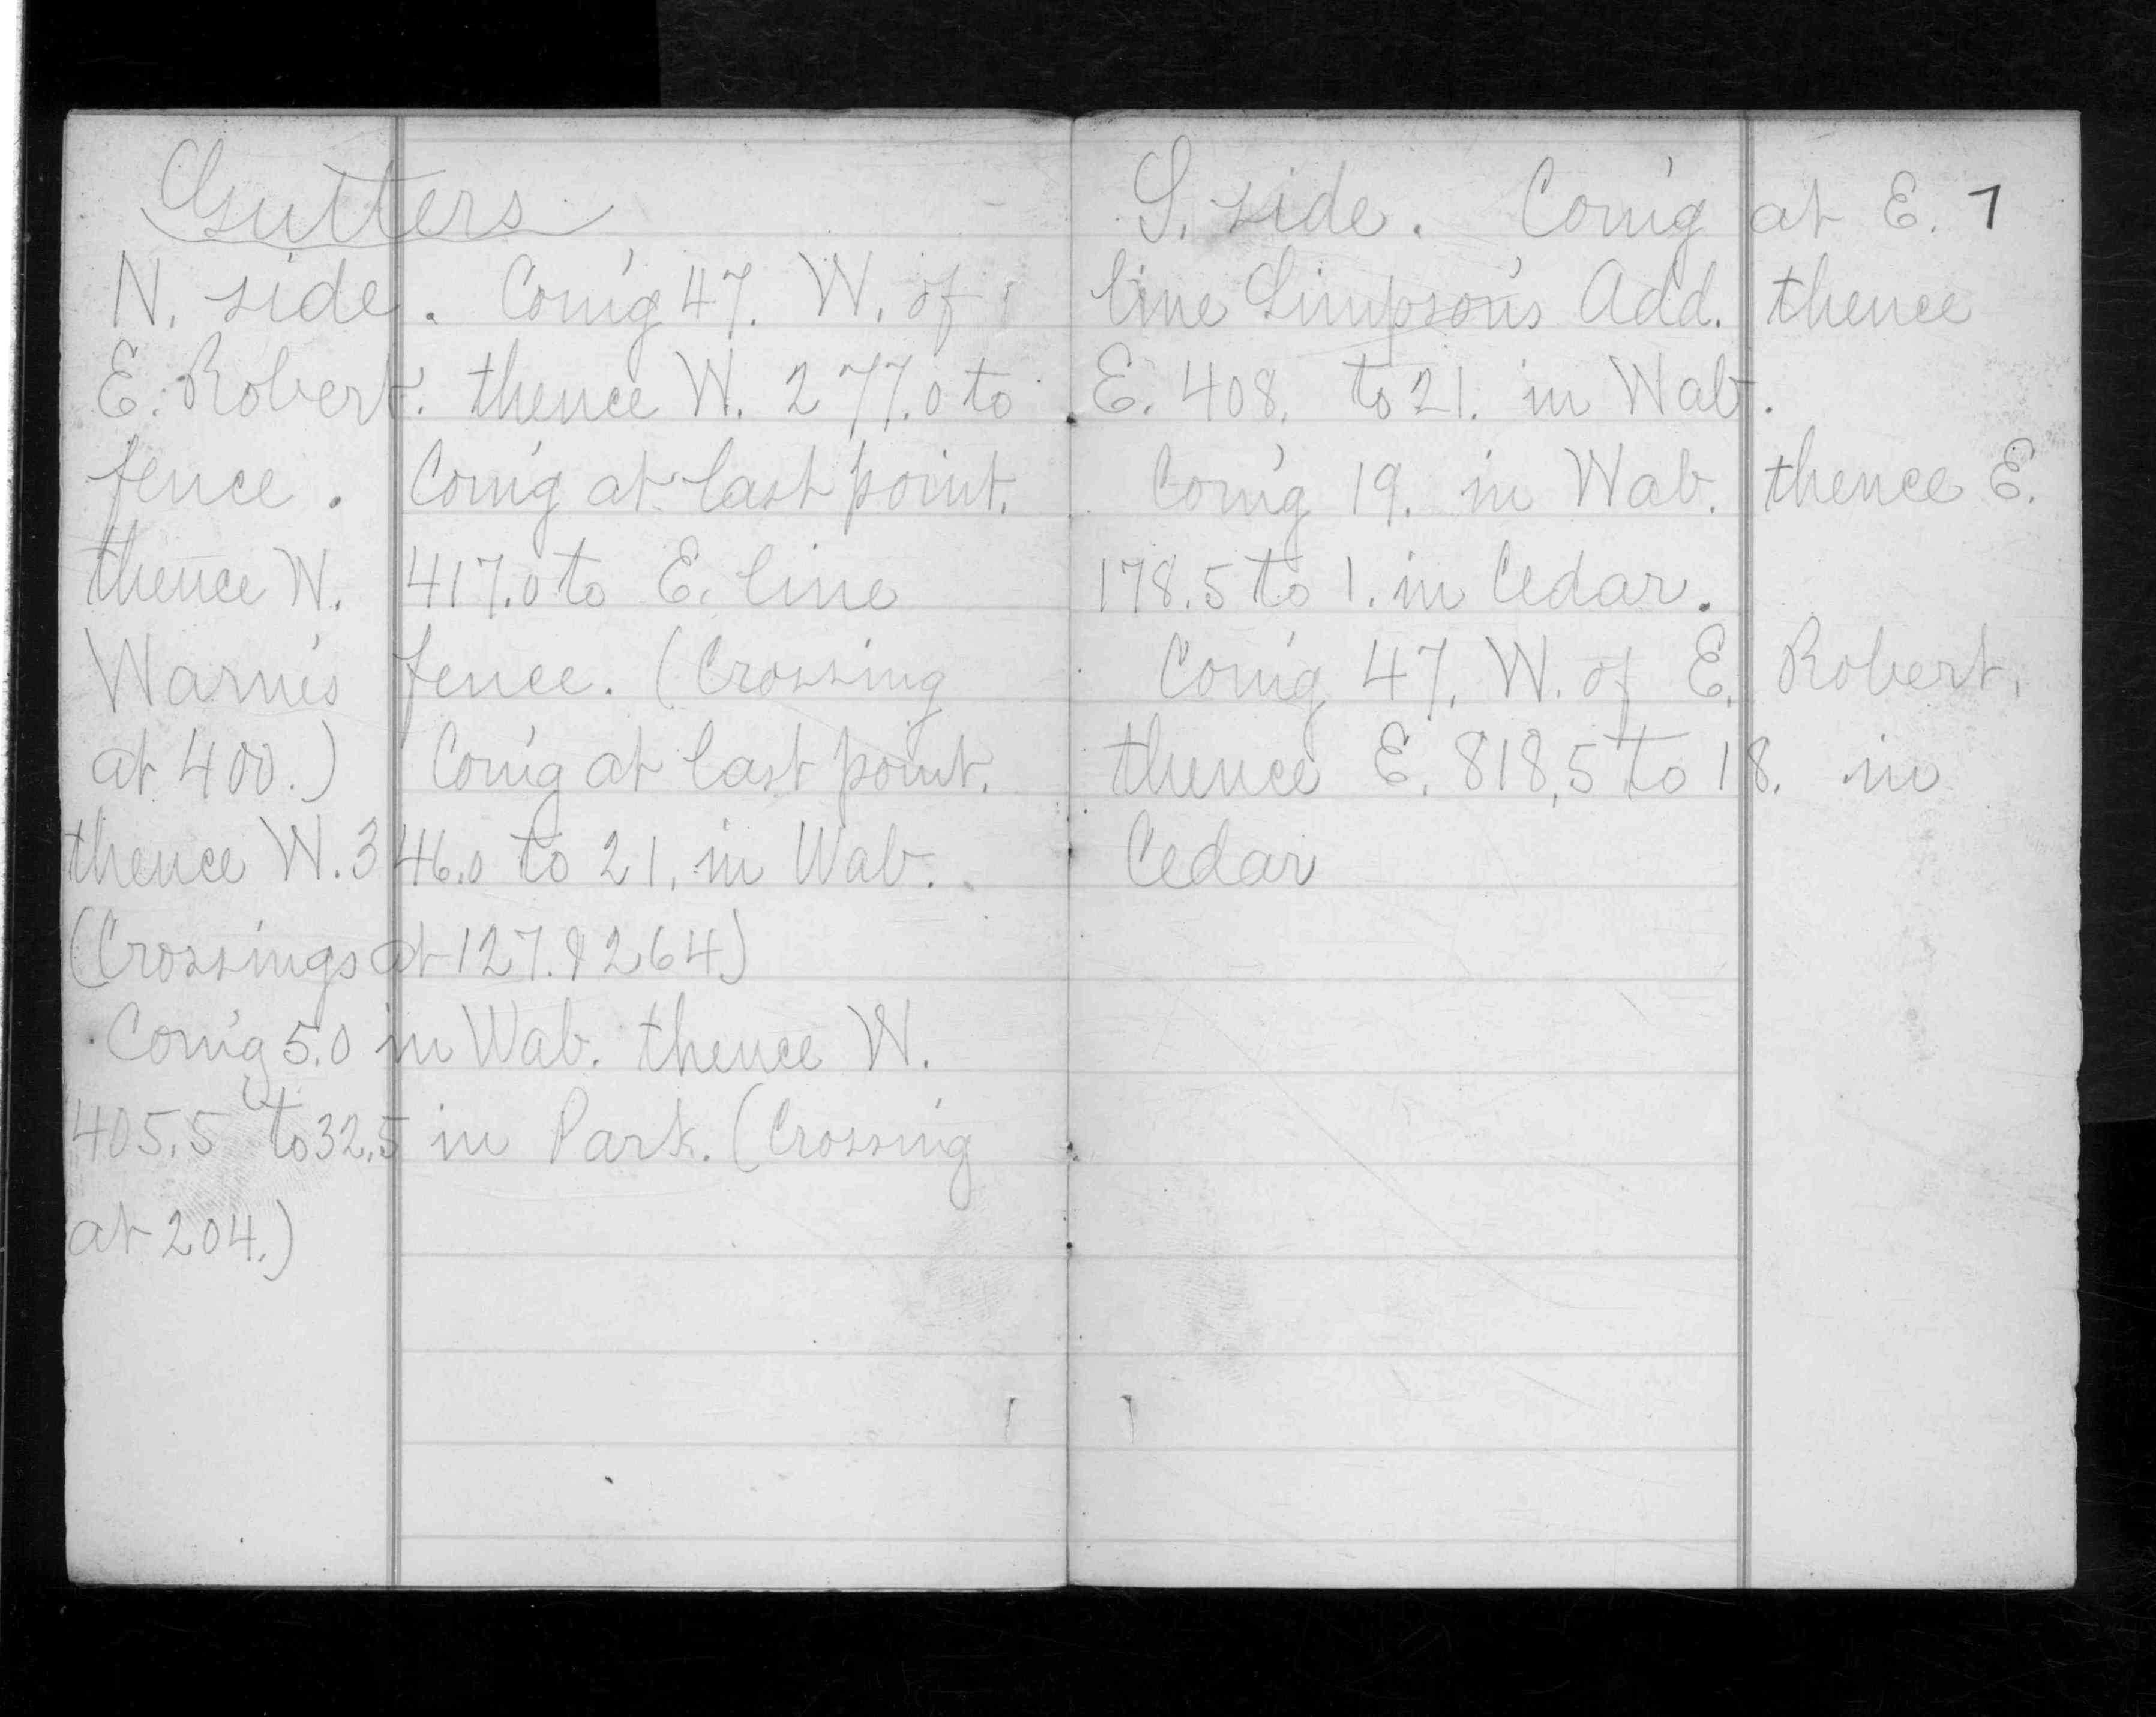 Gutters
N. side. Com'g 47. W. of
E. Robert. thence W. 277.0 to
fence. Com'g at last point.
thence W. 417.0 to E. line
Warne's fence. (Crossing
at 400.) Com'g at last point.
thence W. 346.0 to 21. in Wab.
(Crossings at 127. & 264)
Com'g 5.0 in Wab. thence W.
405.5 to 32.5 in Park. (Crossing
at 204.)
S. side. Com'g at E. 7
line Simpson's Add. thence
E. 408. to 21. in Wab.
Com'g 19. in Wab. thence E.
178.5 to 1. in Cedar.
Com'g 47. W. of E. Robert.
thence E. 818.5 to 18. in
Cedar